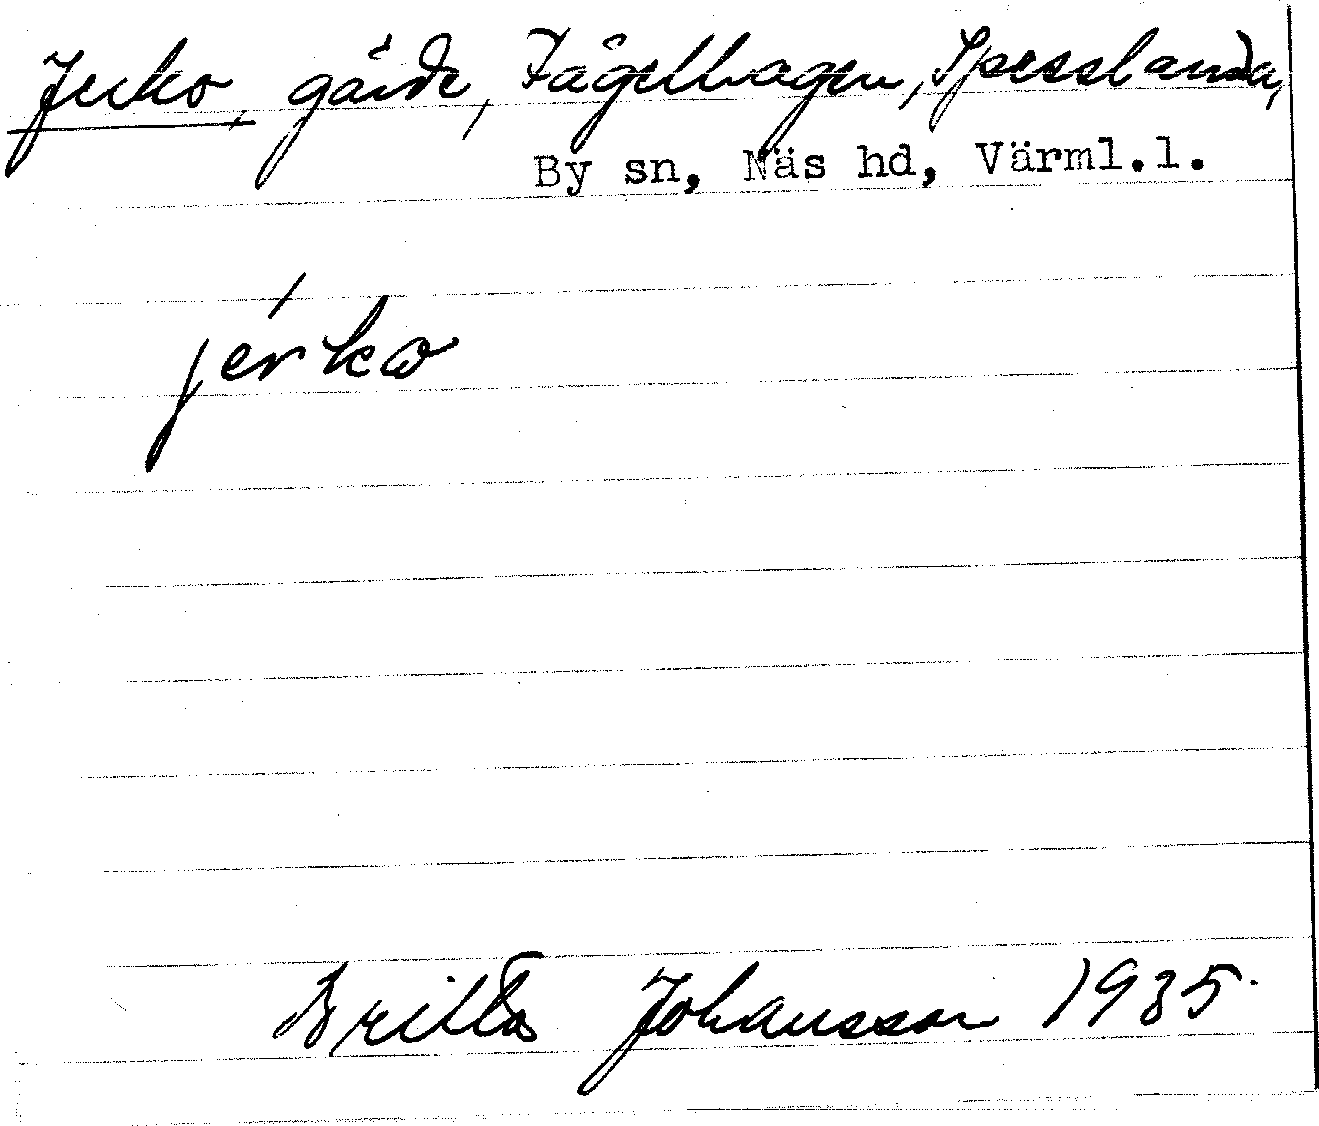 Jerko, gärde, Fågelhagen, Spesslanda,
By sn, Näs hd, Värml.l.
jérko
Britta Johansson 1935.